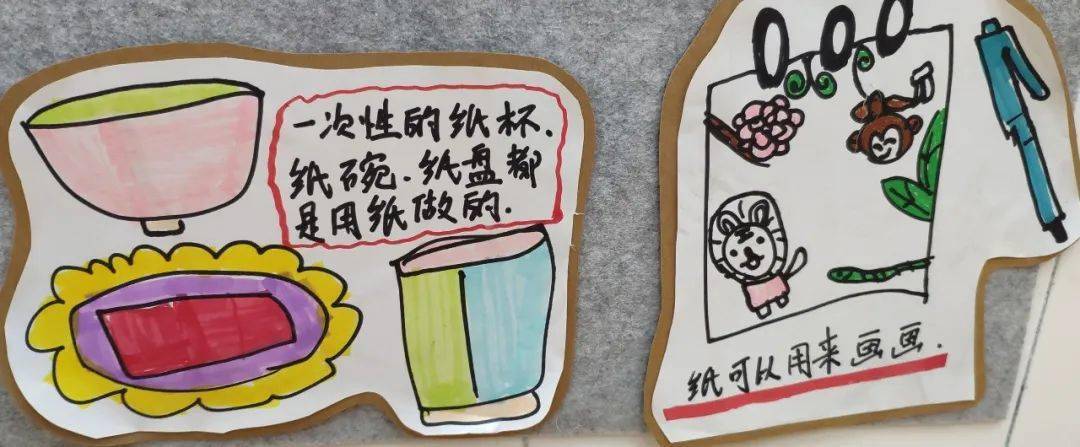 一次性的纸杯.
纸碗.纸盘都
是用纸做的.
纸可以用来画画.